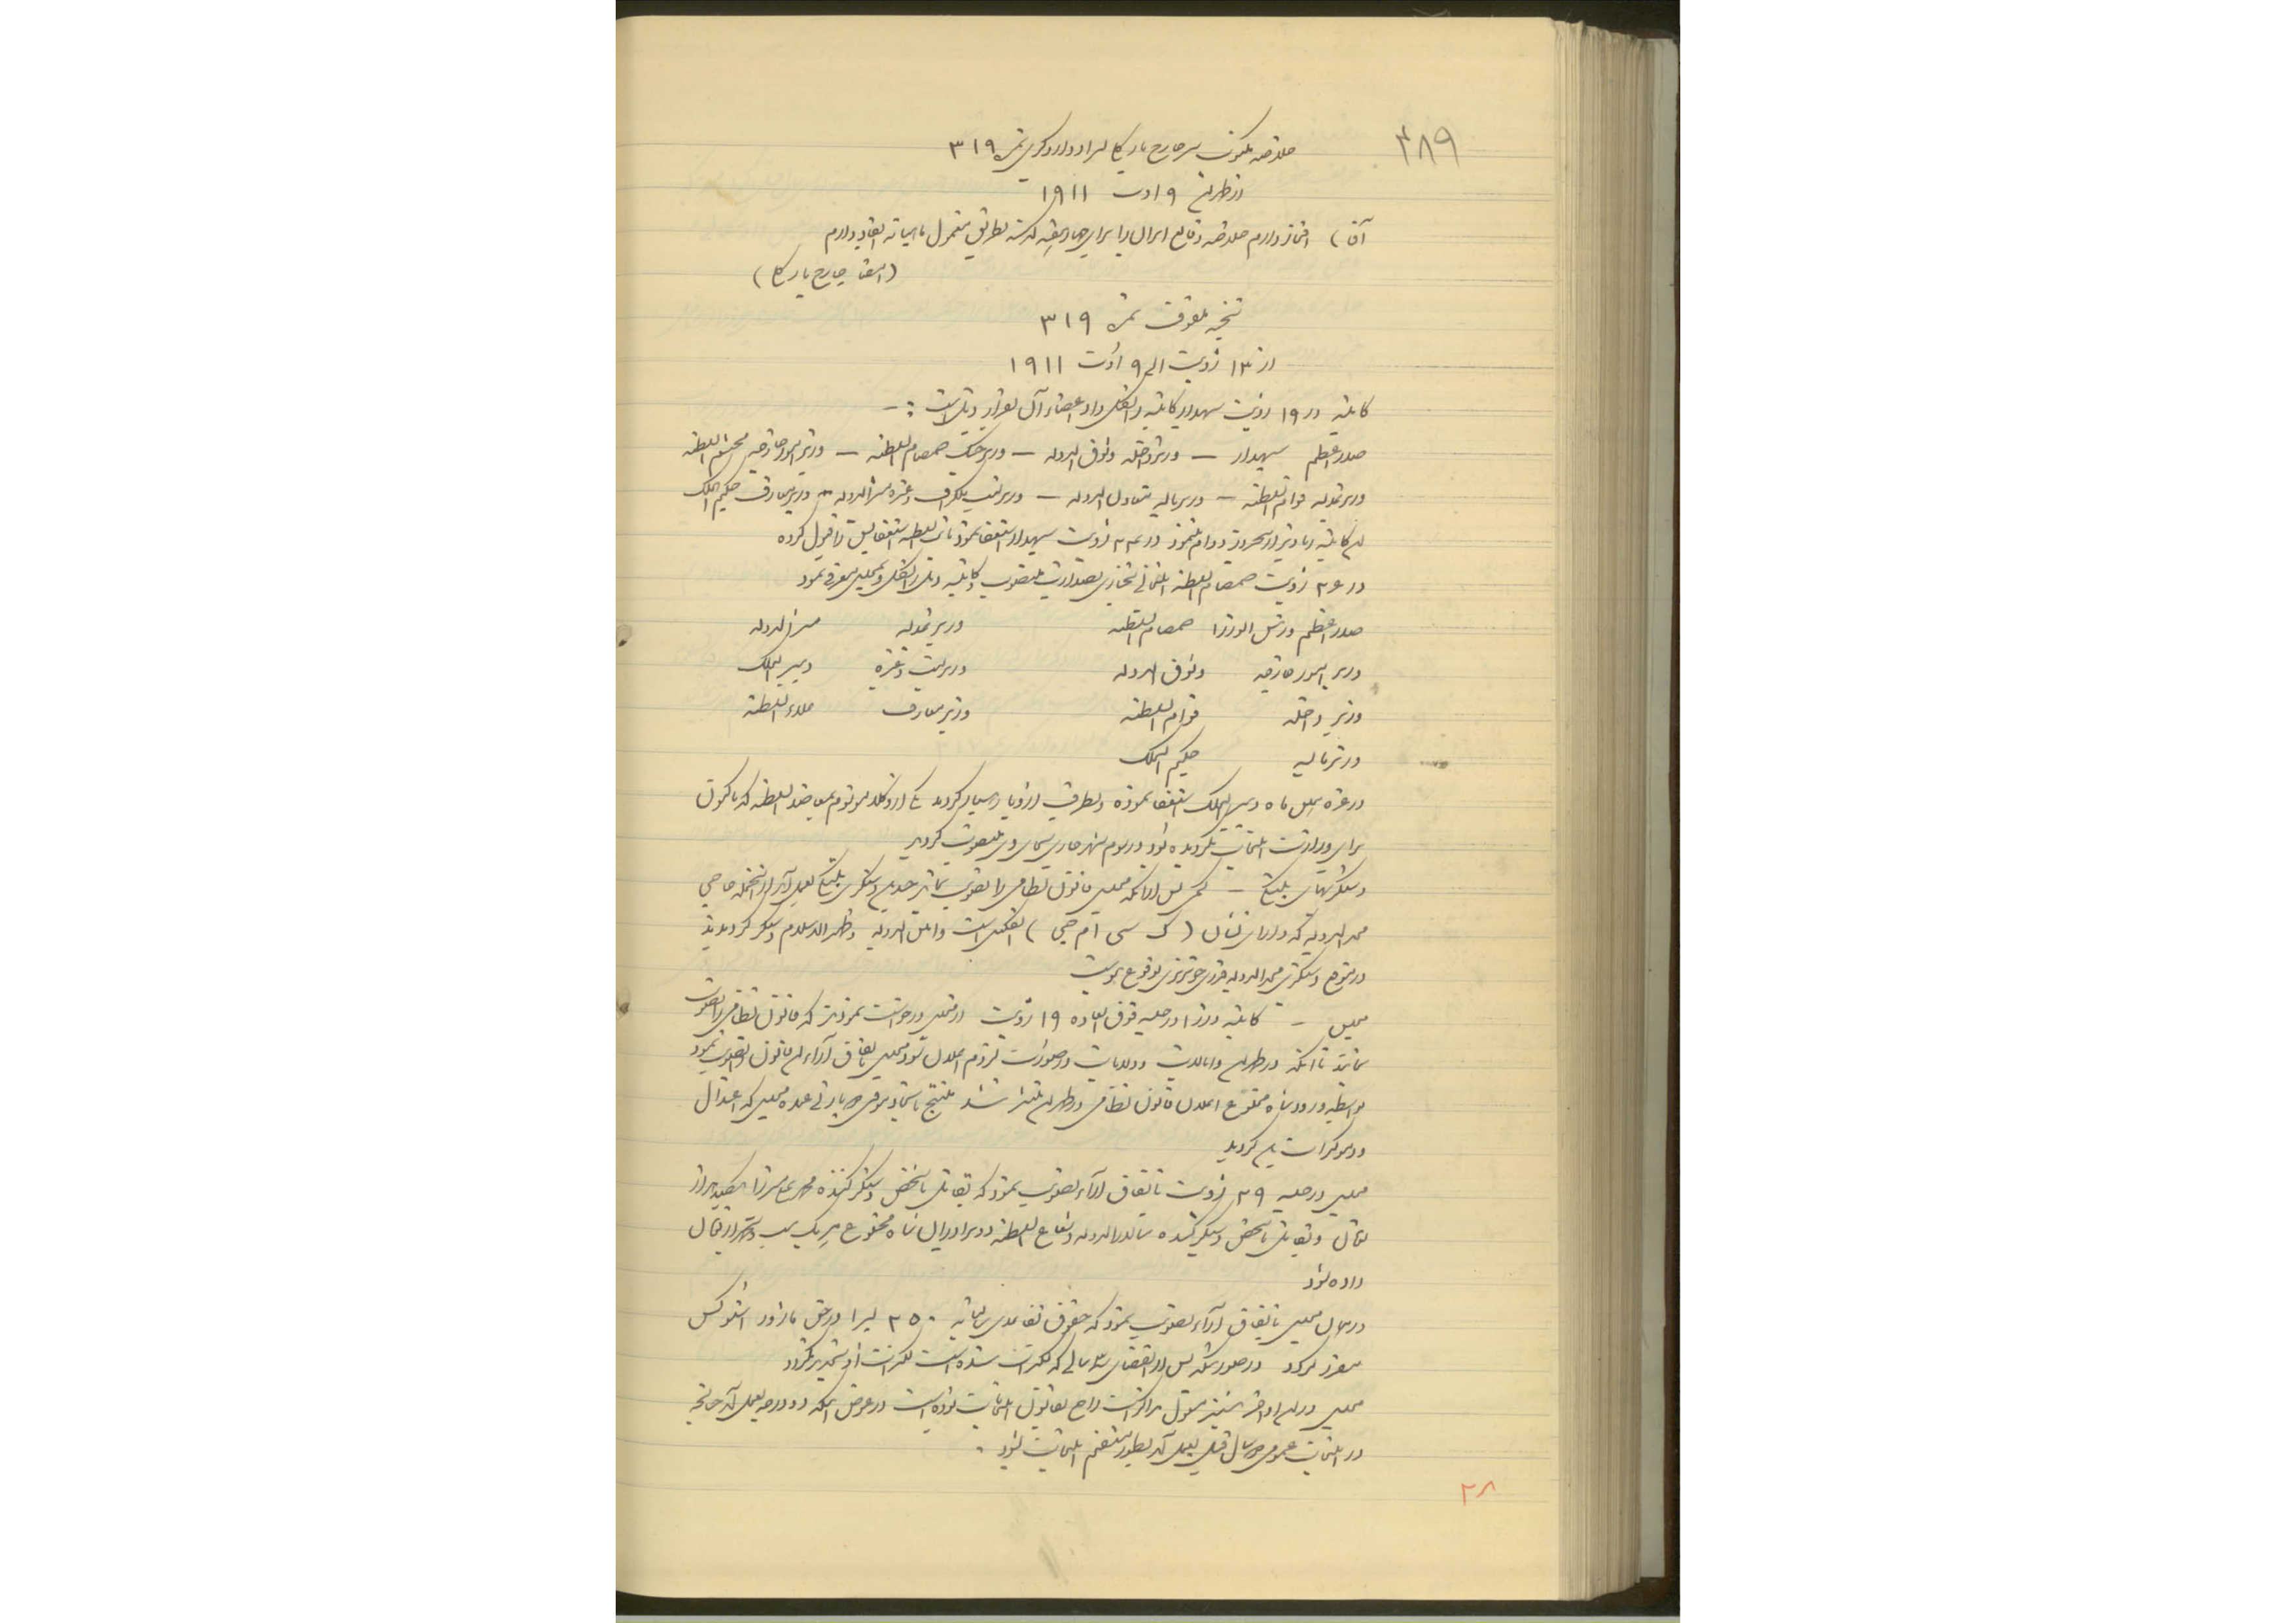 ۳۸۹
خلاصه مکتوب سر جارج بارکلی بسر ادوارد گری نمره ۳۱۹
از طهران ۹ اوت ۱۹۱۱
آقا) افتخار دارم خلاصه وقایع ایران را برای چهار هفته گذشته بطریق معمول با اینجانب انفاد دارم
(امضاء جارج بارکلی)
نتیجه ملفوف نمره ۳۱۹
از ۱۳ ژویت الی ۹ اوت ۱۹۱۱
کابینه در ۱۹ ژویت سپهدار کابینه را تشکیل داد اعضاء آن بقرار ذیل است :-
صدر اعظم سپهدار – وزیر داخله وثوق الدوله – وزیر جنگ صمصام السلطنه – وزیر امور خارجه محتشم السلطنه
وزیر عدلیه قوام السلطنه – وزیر مالیه معاون الدوله – وزیر پست تلگراف و غیره مشیر الدوله – وزیر معارف حکیم الملک
این کابینه زیادتر از سه روز دوام ننمود در ۲۳ ژویت سپهدار استعفا نمود نایب السلطنه استعفایش را قبول کرده
در ۲۶ ژویت صمصام السلطنه بصدارت منصوب و کابینه ذیل را تشکیل و بمجلس معرفی نمود
صدر اعظم و رئیس الوزرا صمصام السلطنه وزیر عدلیه مشیر الدوله
وزیر امور خارجه وثوق الدوله وزیر پست و غیره دبیر الملک
وزیر داخله قوام السلطنه وزیر معارف علاء السلطنه
وزیر مالیه حکیم الملک
در غره این ماه دبیر الملک استعفا نموده و بطرف اروپا رهسپار گردید یکی از وکلاء موسوم بمعاضد السلطنه که تاکنون
برای وزارت انتخاب نگردیده بود در سوم شهر جاری بجای وی منصوب گردید
دستگیریهای پلتیکی – کمی پس از آنکه مجلس قانون نظامی را تصویب نمایند چندین دستگیری پلتیکی بعمل آمد از آنجمله حاجی
مجد الدوله که دارای نشان (ک سی ام جی) انگلیس است و امین الدوله و ظهیر الاسلام دستگیر گردیدند
در موقع دستگیری مجد الدوله قدری خونریزی بوقوع پیوست
مجلس – کابینه وزرا در جلسه فوق العاده ۱۹ ژویت از مجلس درخواست نمودند که قانون نظامی را تصویب
نمایند تا آنکه در طهران و ایالات و ولایات در صورت لزوم اعلان شود مجلس باتفاق آراء این قانون را تصویب نمود
بواسطه ورود شاه مخلوع اعلان قانون نظامی در طهران منتشر شد منتج باتحاد موقتی دو پارتی عمده مجلس که اعتدال
و دموکرات باشد گردید
مجلس در جلسه ۲۹ ژویت باتفاق آراء تصویب نمود که بقاتل یا شخص دستگیر کننده محمد علی میرزا یکصد هزار
تومان و بقاتل یا شخص دستگیر کننده سالار الدوله و شعاع السلطنه دو برادران شاه مخلوع هر یک بیست و پنجهزار تومان
داده شود
در همان مجلس باتفاق آراء تصویب نمود که حقوق تقاعدی سالیانه ۲۵۰ لیرا در حق ماژور استوکس
مقرر گردد در صورتیکه پس از انقضای ۳ سالی که کنترات شده است کنترات او تجدید نگردد
مجلس در این اواخر نیز مشغول مذاکرات راجع بقانون انتخابات بوده است در عوض اینکه دو درجه بعمل آید چنانچه
در انتخابات عمومی دو سال قبل بعمل آمد بطور مستقیم انتخابات شود .
۲۸